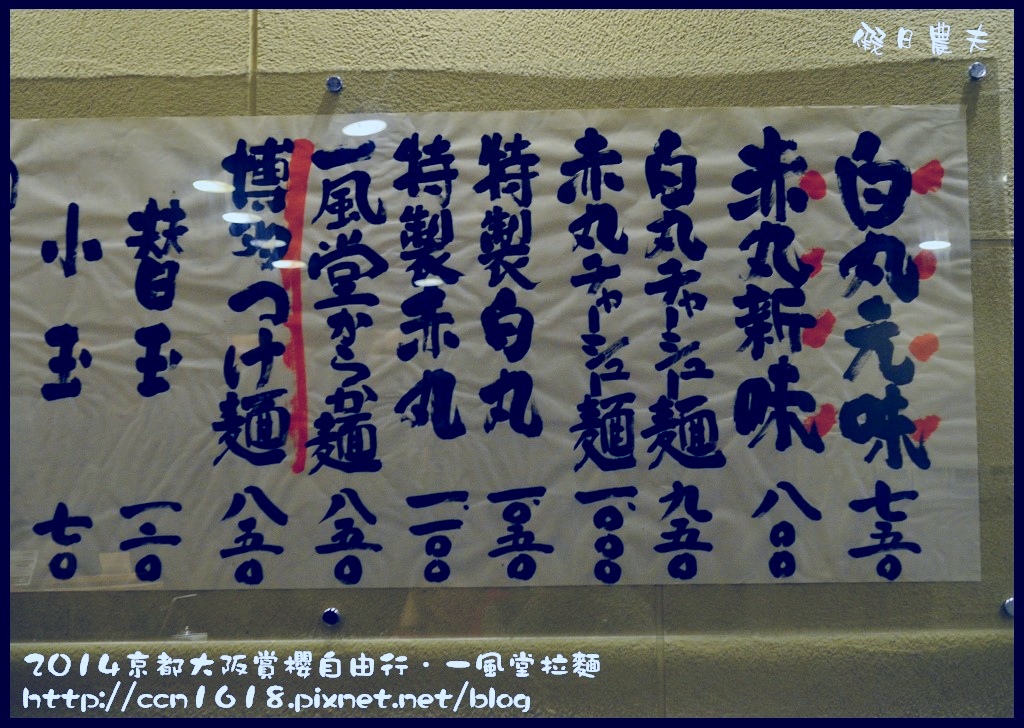 假日農夫
白丸元味 七五〇
赤丸新味 八〇〇
白丸チャーシュー麺 九五〇
赤丸チャーシュー麺 一〇〇〇
特製白丸 一〇五〇
特製赤丸 一一〇〇
一風堂からか麺 八五〇
博多つけ麺 八五〇
替玉 一二〇
小玉 七〇
2014京都大阪賞櫻自由行·一風堂拉麵
http://ccn1618.pixnet.net/blog